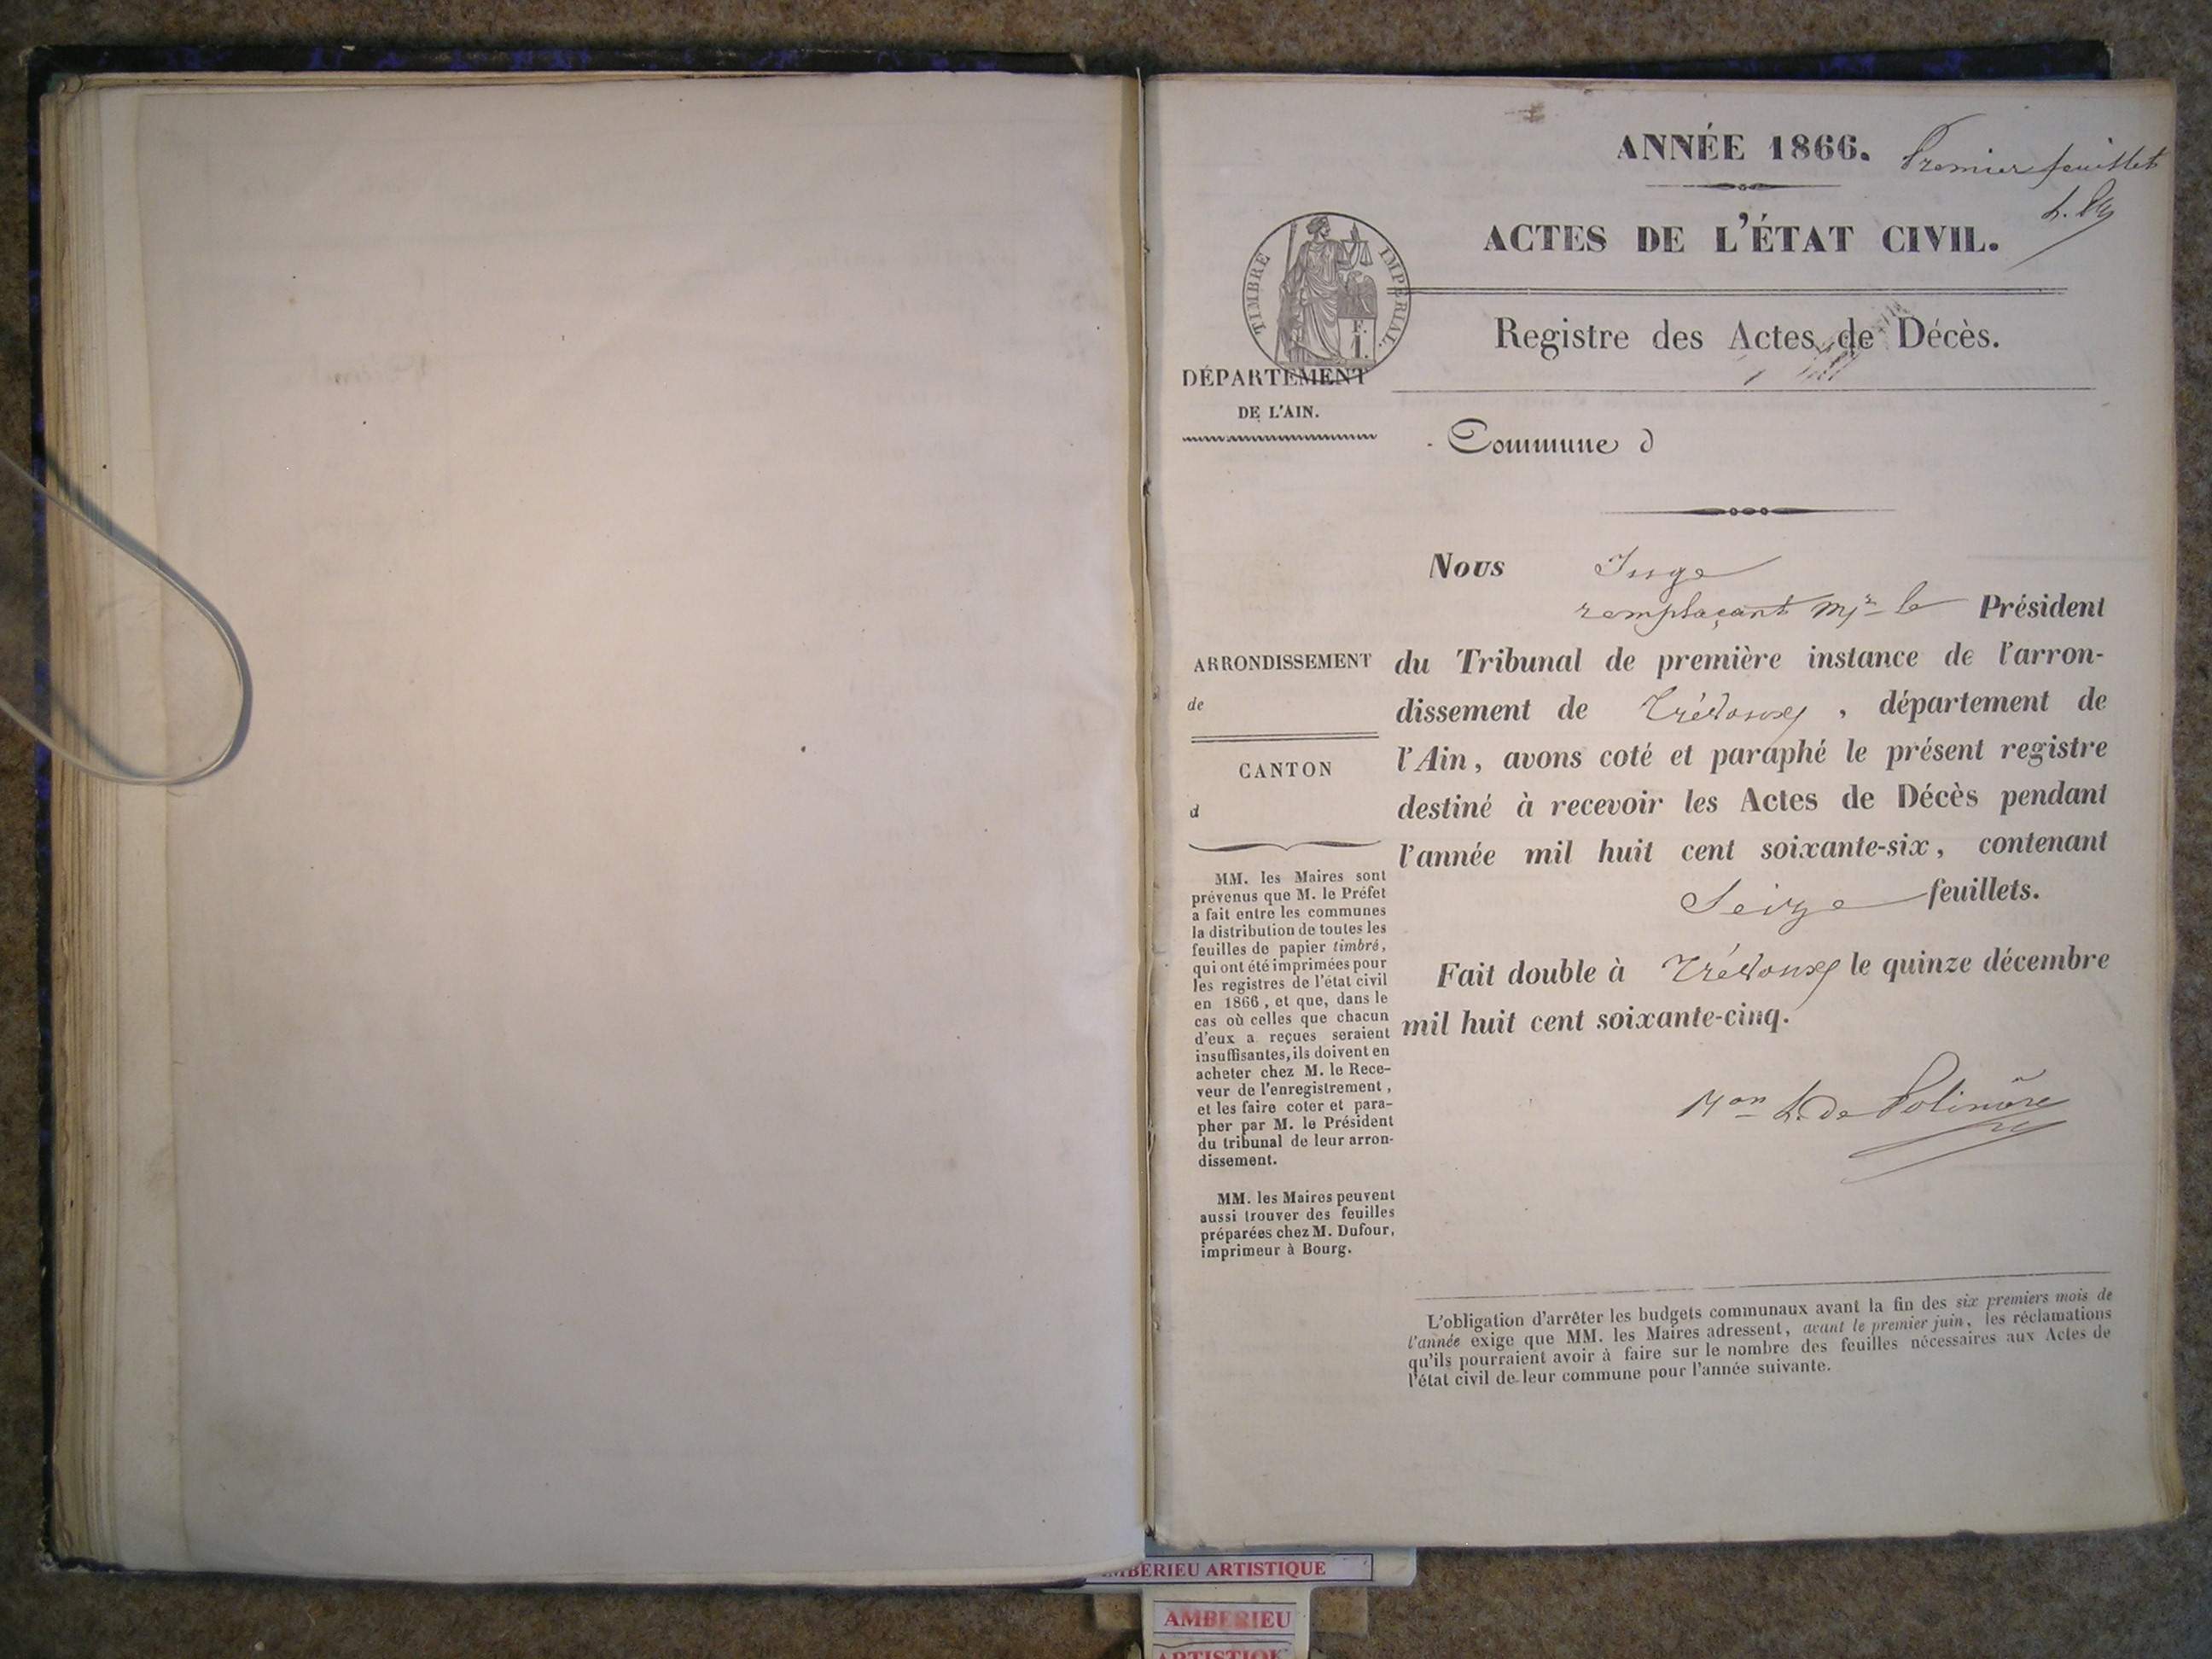 ANNÉE 1866.
Premier feuillet
ACTES DE L'ÉTAT CIVIL.
TIMBRE IMPERIAL.
F.
1.
Registre des Actes de Décès.
DÉPARTEMENT
DE L'AIN.
Commune d
Nous Juge
remplaçant Mr le Président
du Tribunal de première instance de l'arron-
dissement de Trévoux, département de
l'Ain, avons coté et paraphé le présent registre
destiné à recevoir les Actes de Décès pendant
l'année mil huit cent soixante-six, contenant
Seize feuillets.
Fait double à Trévoux le quinze décembre
mil huit cent soixante-cinq.
L. de Polinière
ARRONDISSEMENT
de
CANTON
d
MM. les Maires sont
prévenus que M. le Préfet
a fait entre les communes
la distribution de toutes les
feuilles de papier timbré,
qui ont été imprimées pour
les registres de l'état civil
en 1866, et que, dans le
cas où celles que chacun
d'eux a reçues seraient
insuffisantes, ils doivent en
acheter chez M. le Rece-
veur de l'enregistrement,
et les faire coter et para-
pher par M. le Président
du tribunal de leur arron-
dissement.
MM. les Maires peuvent
aussi trouver des feuilles
préparées chez M. Dufour,
imprimeur à Bourg.
L'obligation d'arrêter les budgets communaux avant la fin des six premiers mois de
l'année exige que MM. les Maires adressent, avant le premier juin, les réclamations
qu'ils pourraient avoir à faire sur le nombre des feuilles nécessaires aux Actes de
l'état civil de leur commune pour l'année suivante.
AMBERIEU ARTISTIQUE
AMBERIEU